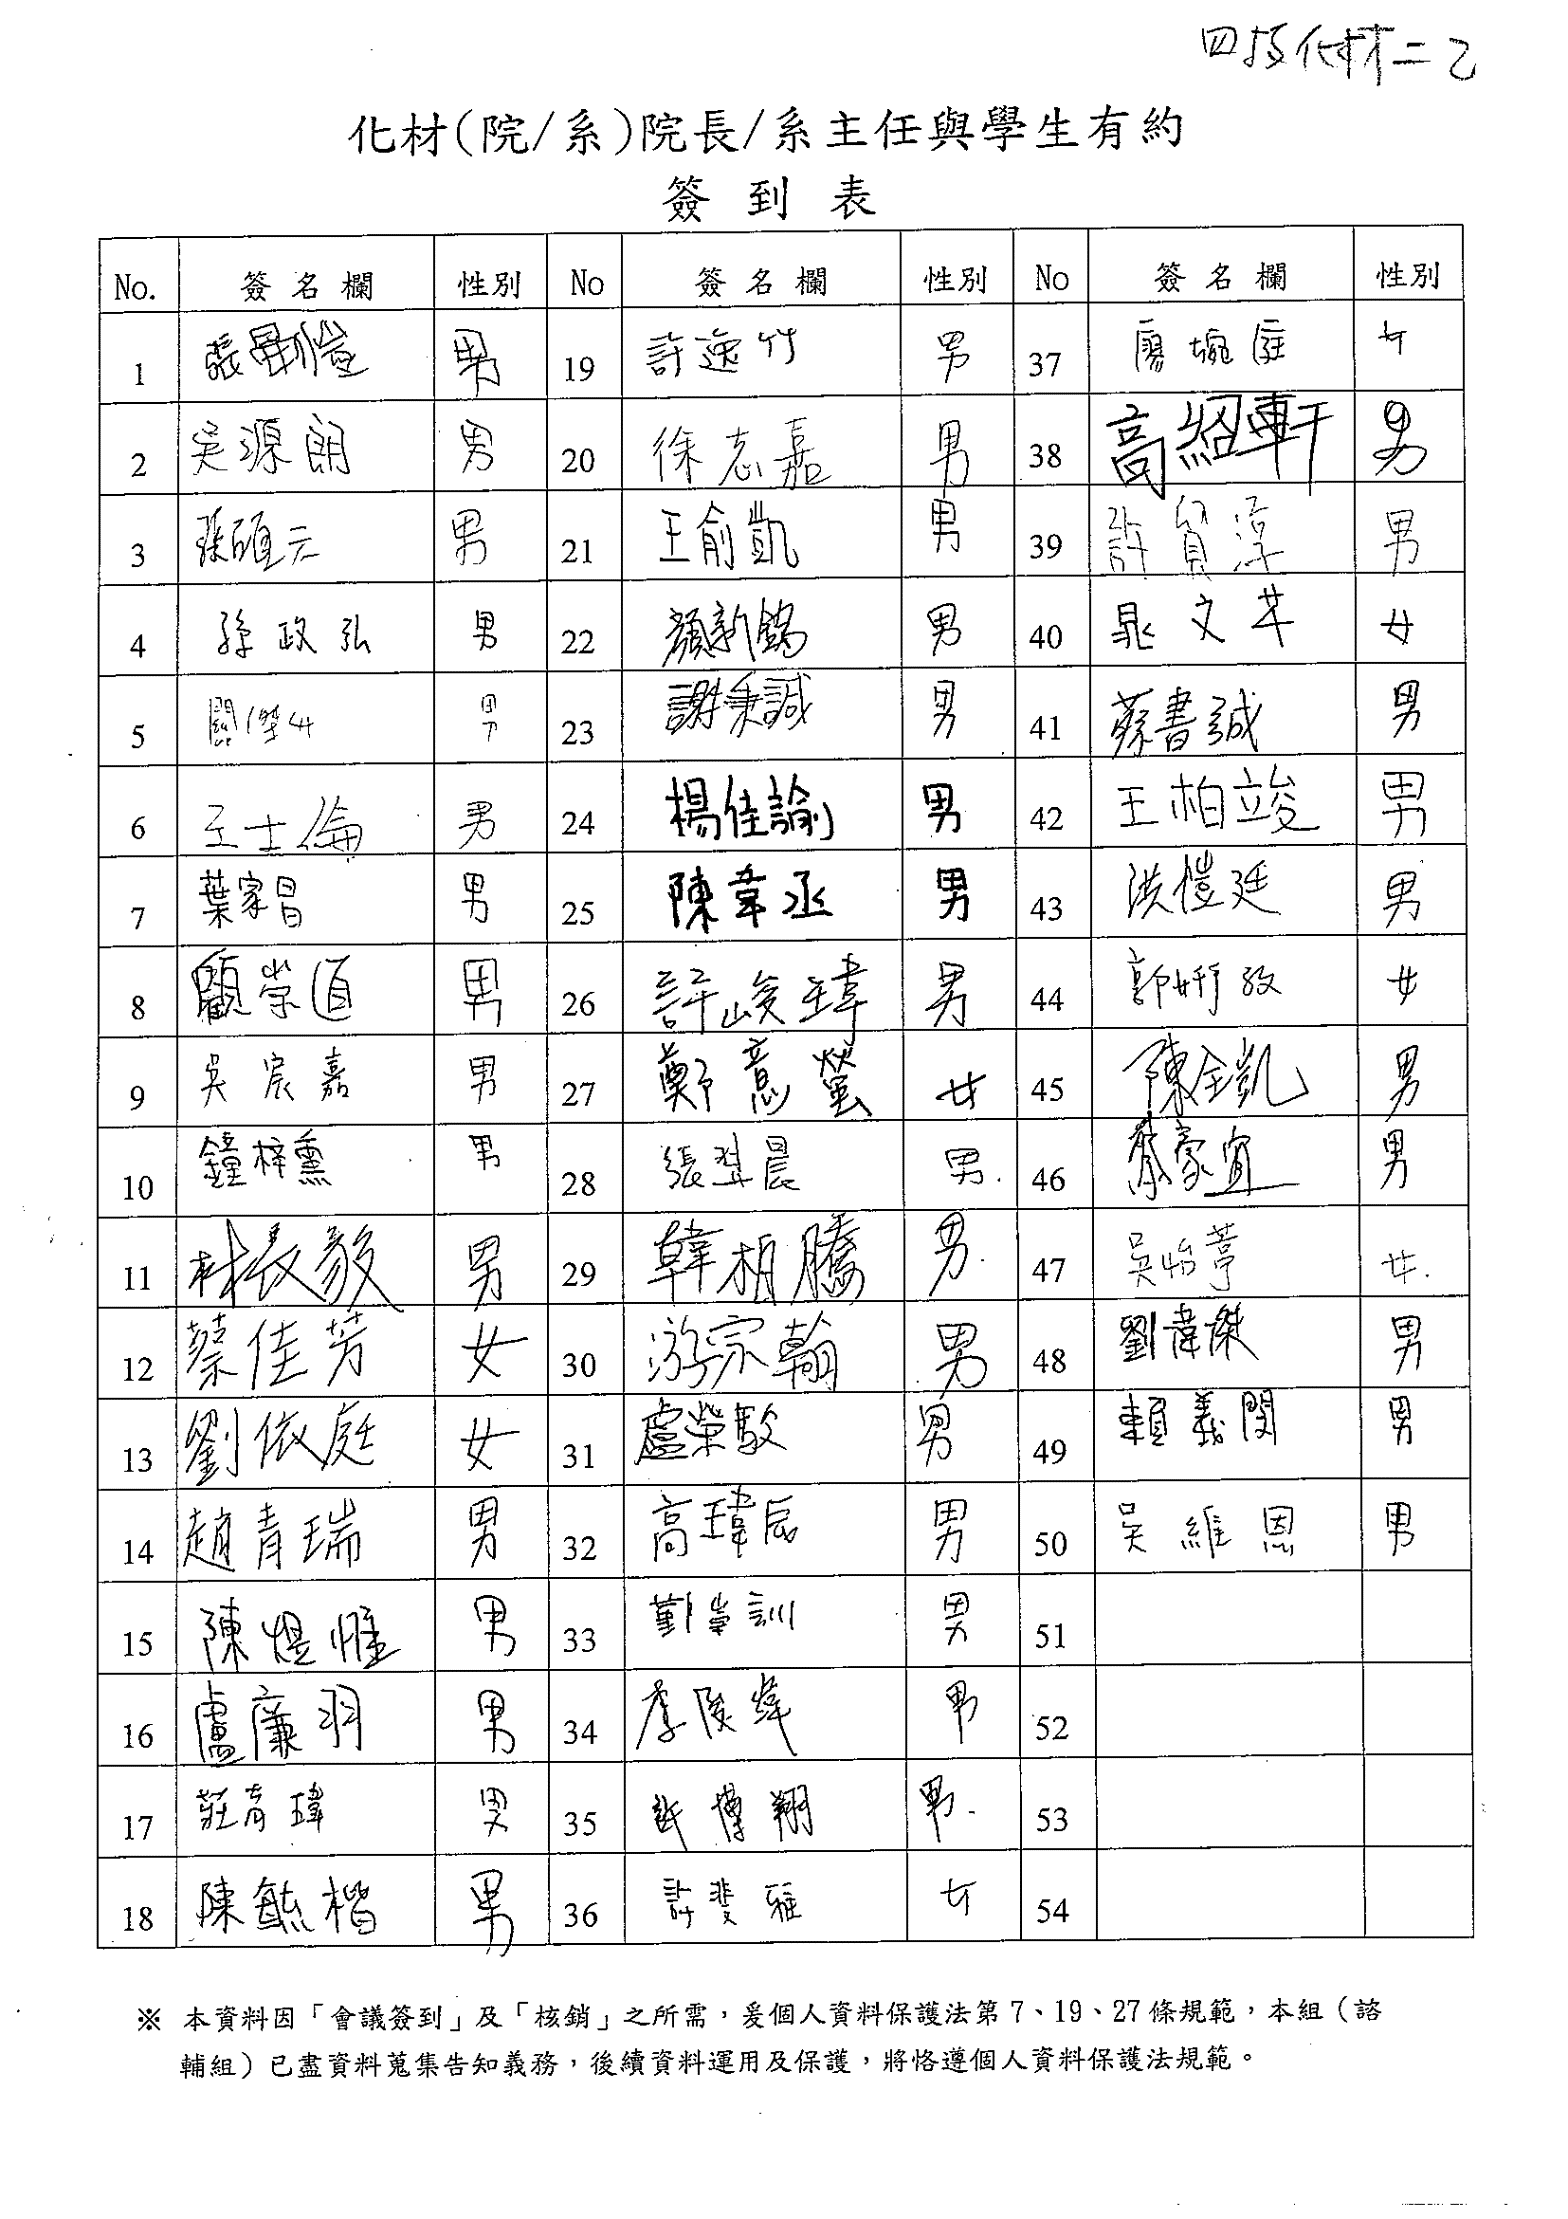 四技化材二乙
化材(院/系)院長/系主任與學生有約
簽到表
No. 簽名欄 性別 No 簽名欄 性別 No 簽名欄 性別
1 張 愷 男 19 許逸竹 男 37 廖婉庭 女
2 吳源朗 男 20 徐志嘉 男 38 高紹軒 男
3 張碩元 男 21 王俞凱 男 39 許貿淳 男
4 孫政弘 男 22 顏新錦 男 40 晁文芊 女
5 闕傑 男 23 謝秉誠 男 41 蔡書誠 男
6 王士倫 男 24 楊佳諭 男 42 王柏竣 男
7 葉家昌 男 25 陳韋丞 男 43 洪愷廷 男
8 顧崇道 男 26 許峻瑋 男 44 郭妍 女
9 吳宸嘉 男 27 鄭意螢 女 45 陳全凱 男
10 鐘梓熏 男 28 張 晨 男. 46 蔡豪宜 男
11 林長毅 男 29 韓相騰 男. 47 吳怡葶 女.
12 蔡佳芳 女 30 游宗翰 男 48 劉韋傑 男
13 劉依庭 女 31 盧榮敬 男 49 賴義閔 男
14 趙青瑞 男 32 高瑋辰 男 50 吳維恩 男
15 陳煜惟 男 33 鄞 訓 男 51
16 盧廉羽 男 34 李俊緯 男 52
17 莊育瑋 男 35 許博翔 男. 53
18 陳毓楷 男 36 許斐雅 女 54
※ 本資料因「會議簽到」及「核銷」之所需，爰個人資料保護法第 7、19、27 條規範，本組（諮
輔組）已盡資料蒐集告知義務，後續資料運用及保護，將恪遵個人資料保護法規範。